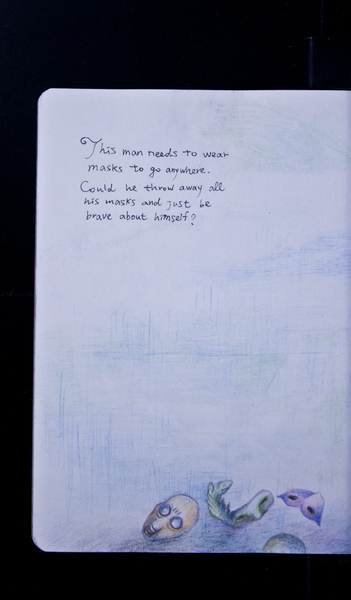 This man needs to wear
masks to go anywhere.
Could he throw away all
his masks and just be
brave about himself?